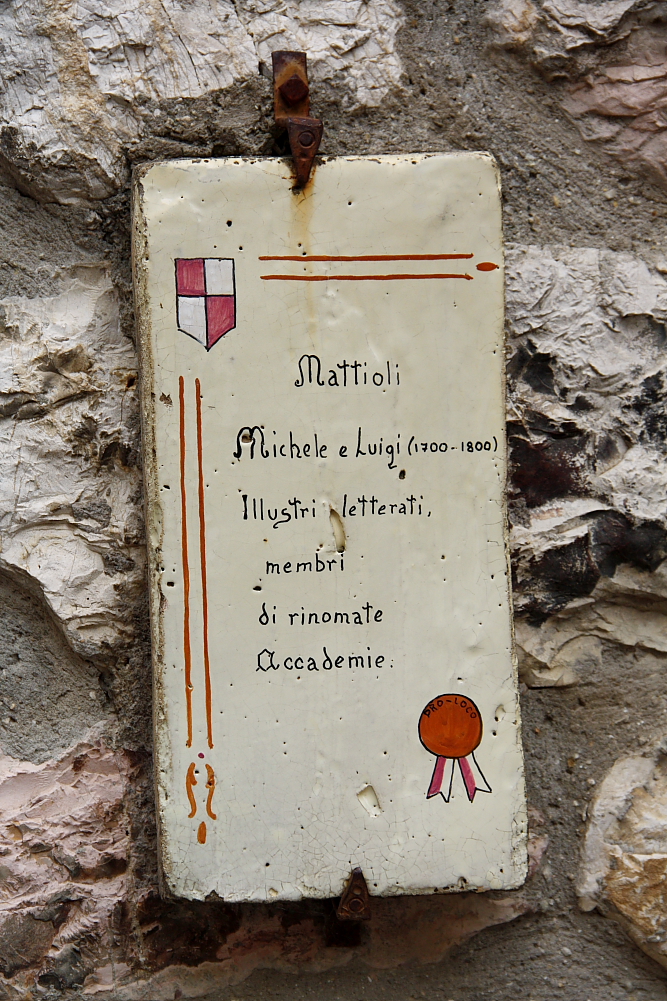 Mattioli
Michele e Luigi (1700-1800)
Illustri letterati,
membri
di rinomate
Accademie.
PRO-LOCO